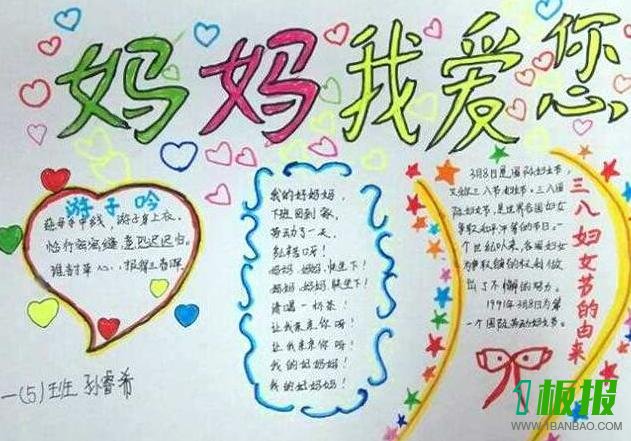 妈妈我爱您
游子吟
慈母手中线，游子身上衣。
临行密密缝 意恐迟迟归。
报得三春晖
一(5)班 孙睿希
我的好妈妈，
下班回到家，
劳动了一天，
多辛苦呀！
妈妈 妈妈 快坐下！
妈妈 妈妈 快坐下！
请喝一杯茶！
让我亲亲你呀！
让我亲亲你呀！
我的好妈妈！
我的好妈妈！
3月8日是国际妇女节，
三八节 三八国
际妇女节，是世界各国妇女
争取和平 等的节日。一
个世纪以来，各国妇女
为争取 的权利做
出了不懈的努力。
1991年3月8日为第
一个国际劳动妇女节。
三八妇女节的由来
1板报
WWW.1BANBAO.COM